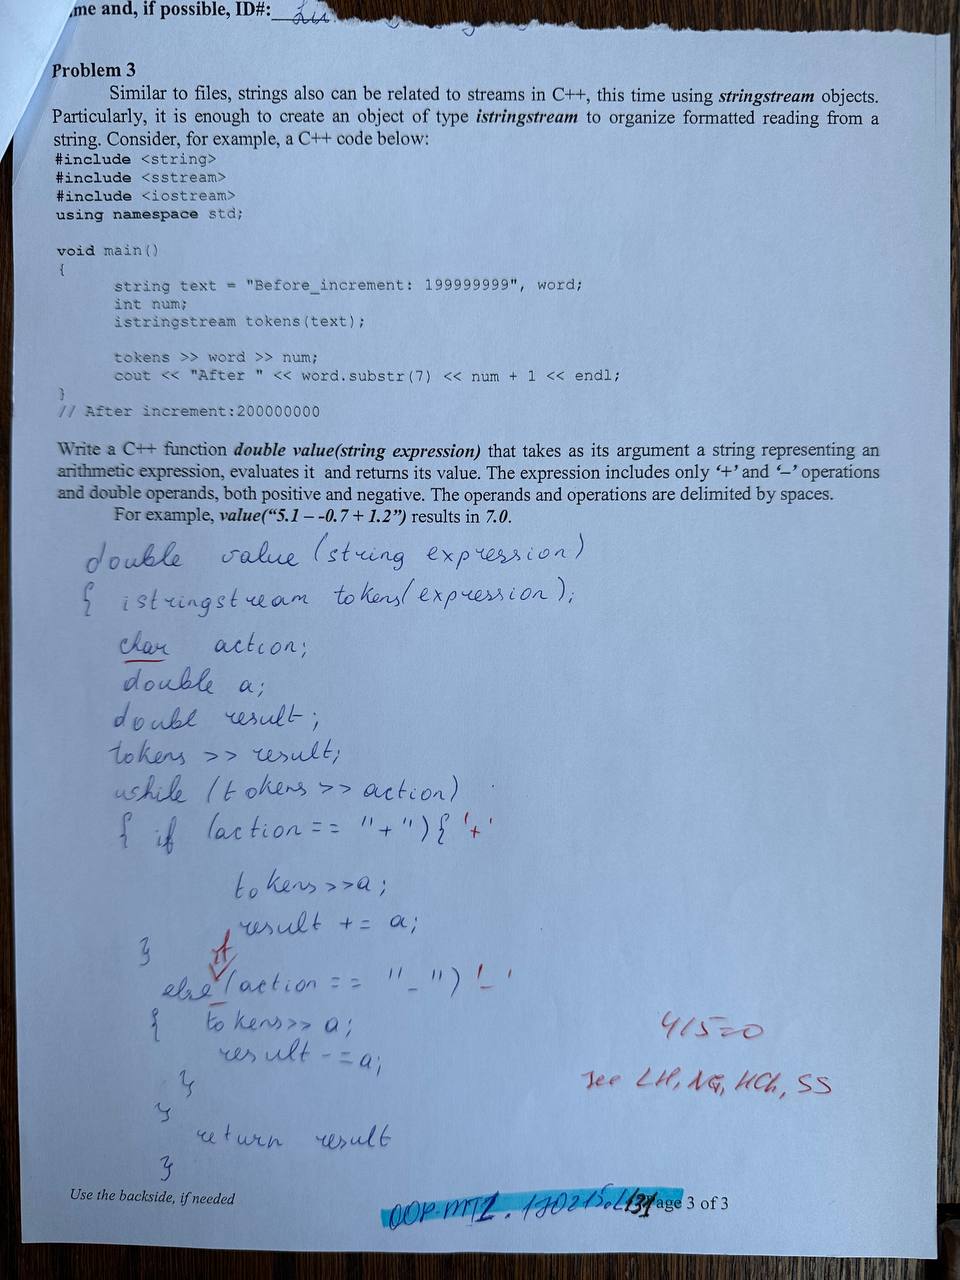 me and, if possible, ID#:
Problem 3
Similar to files, strings also can be related to streams in C++, this time using stringstream objects.
Particularly, it is enough to create an object of type istringstream to organize formatted reading from a
string. Consider, for example, a C++ code below:
#include <string>
#include <sstream>
#include <iostream>
using namespace std;
void main()
{
string text = "Before_increment: 199999999", word;
int num;
istringstream tokens(text);
tokens >> word >> num;
cout << "After " << word.substr(7) << num + 1 << endl;
}
// After increment:200000000
Write a C++ function double value(string expression) that takes as its argument a string representing an
arithmetic expression, evaluates it and returns its value. The expression includes only ‘+’ and ‘–’ operations
and double operands, both positive and negative. The operands and operations are delimited by spaces.
For example, value(“5.1 – -0.7 + 1.2”) results in 7.0.
double value (string expression)
{ istringstream tokens(expression);
char action;
double a;
doubl result;
tokens >> result;
while (tokens >> action)
{ if (action == "+"){ '+'
tokens>>a;
result += a;
}
if
else (action == "-") '-'
{ tokens>> a;
result -=a;
}
}
return result
}
4/5=0
see LH, NG, HCh, SS
Use the backside, if needed
OOP-MT2. 170215. age 3 of 3